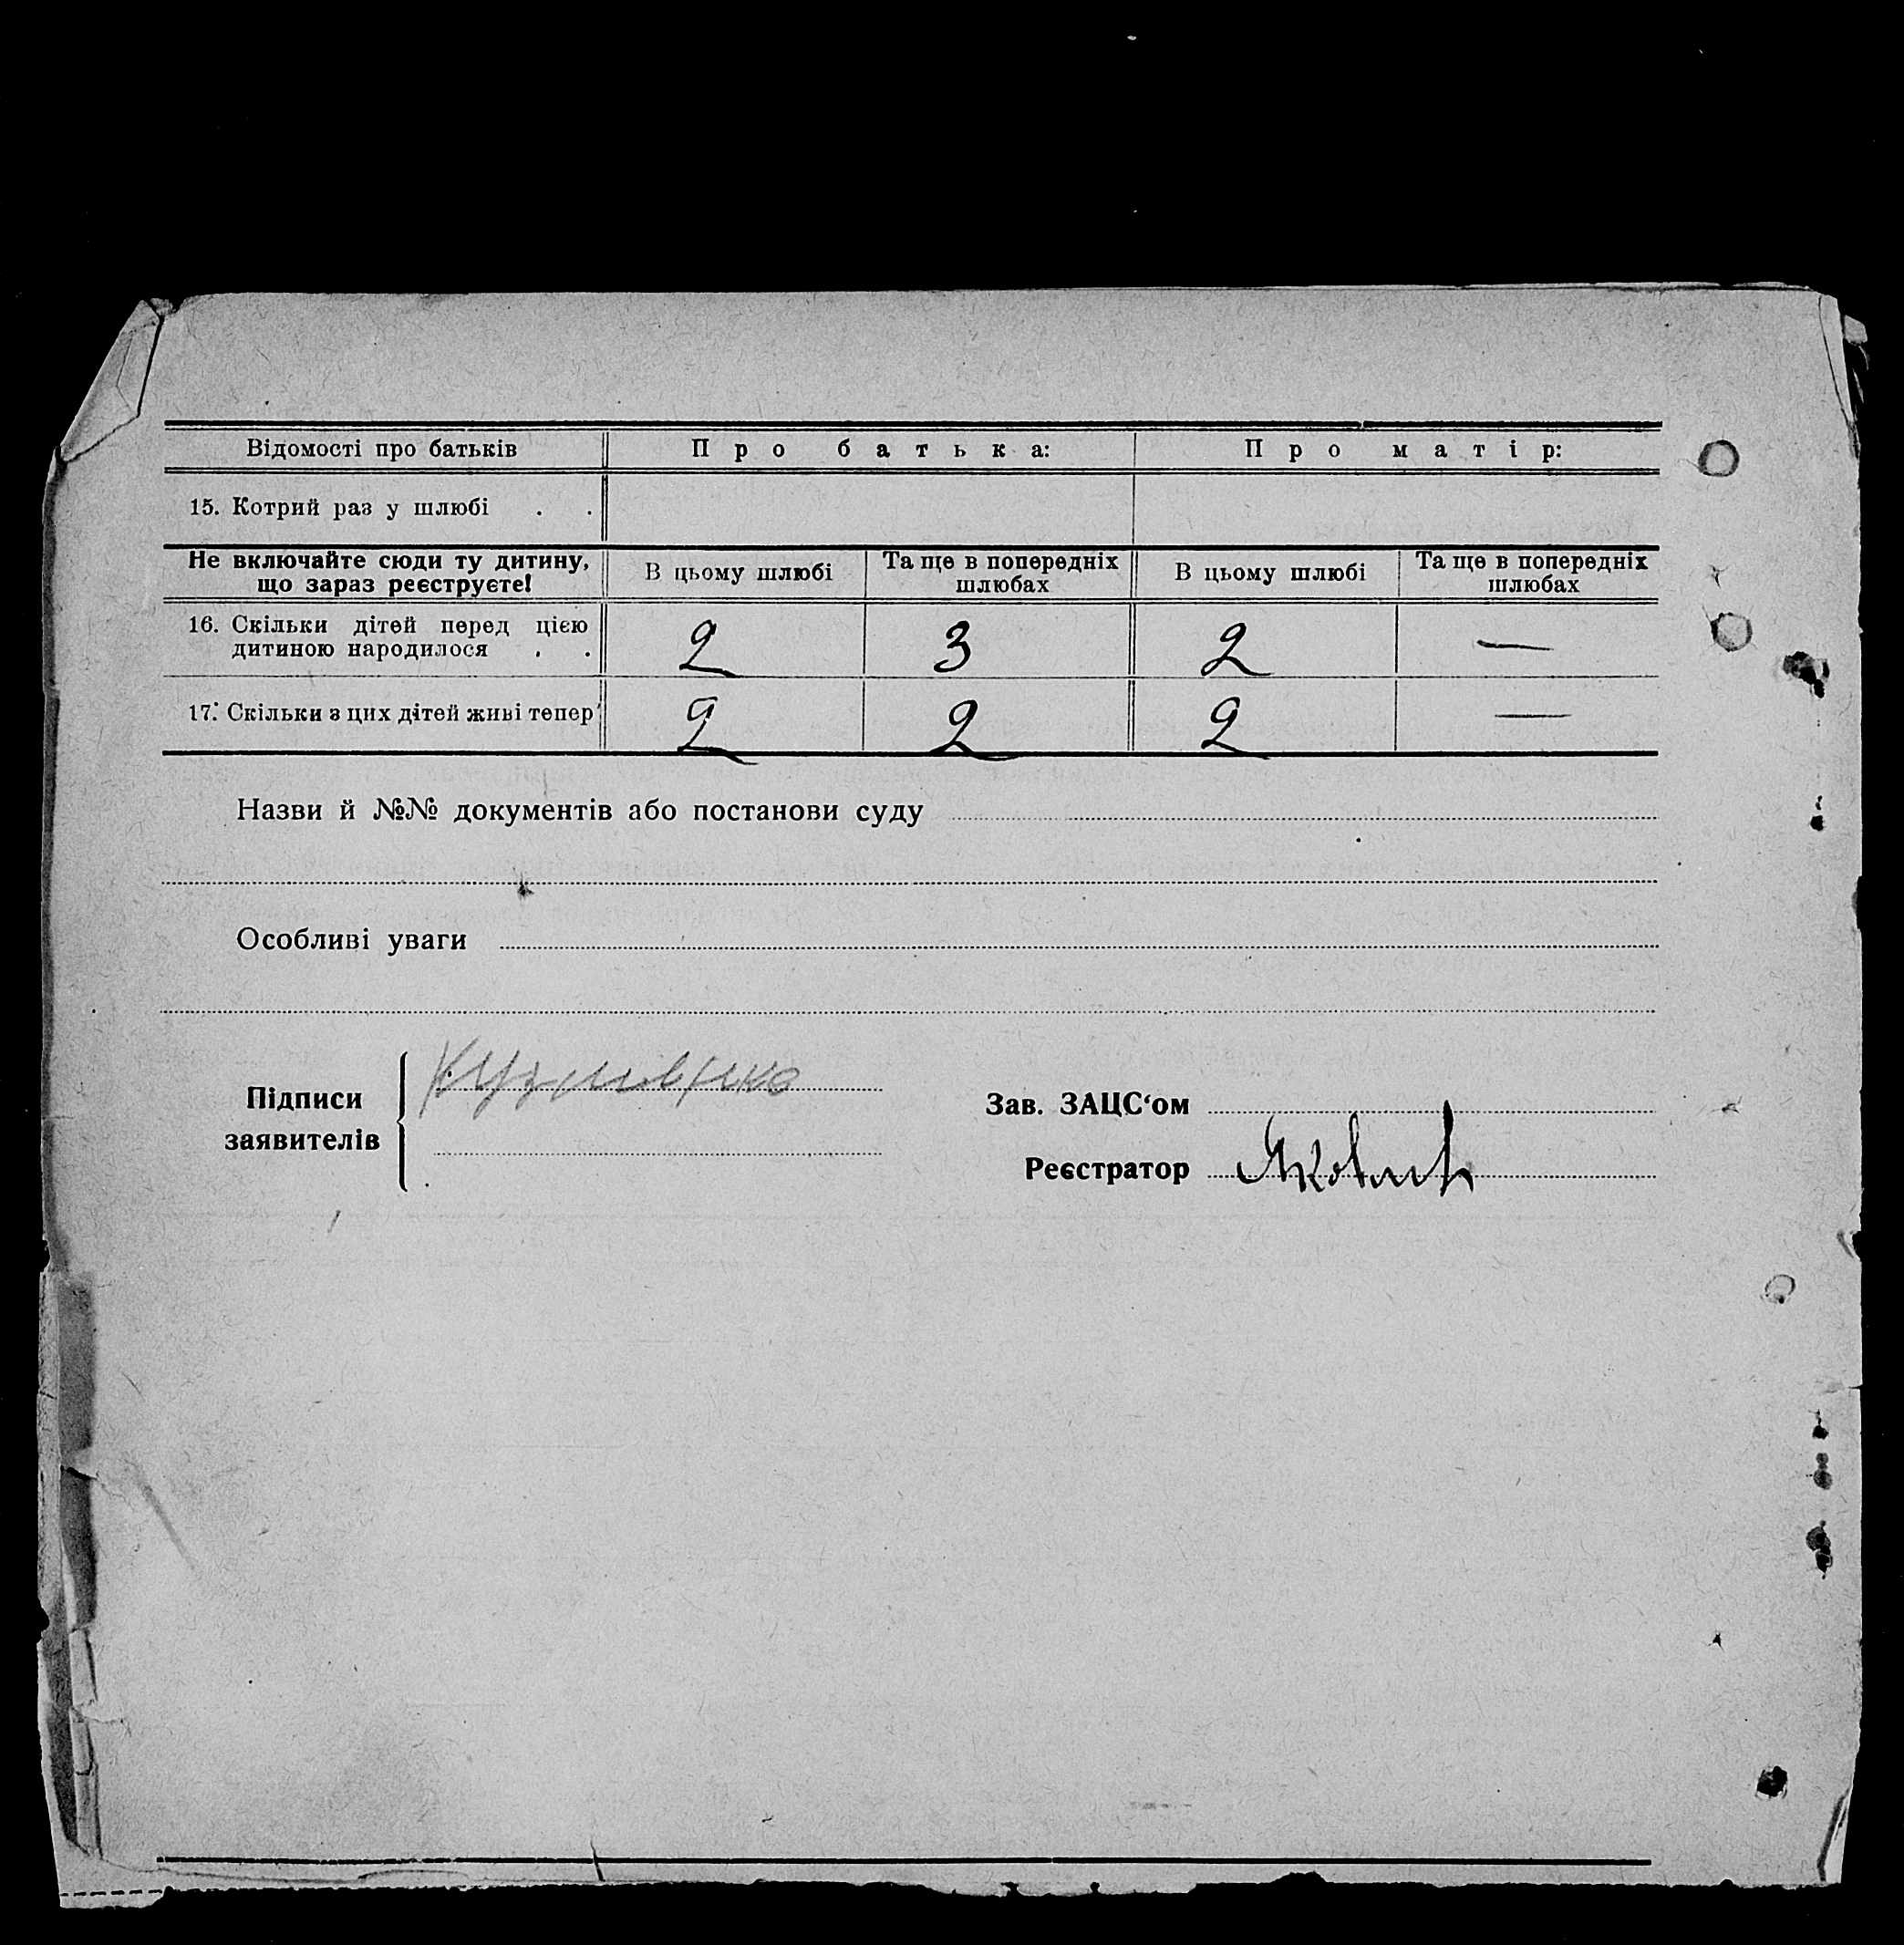 Відомості про батьків Про батька: Про матір:
15. Котрий раз у шлюбі . .
Не включайте сюди ту дитину, що зараз реєструєте! В цьому шлюбі Та ще в попередніх шлюбах В цьому шлюбі Та ще в попередніх шлюбах
16. Скільки дітей перед цією дитиною народилося . . 2 3 2 —
17. Скільки з цих дітей живі тепер 2 2 2 —
Назви й №№ документів або постанови суду
Особливі уваги
Підписи заявителів
Зав. ЗАЦС‘ом
Реєстратор